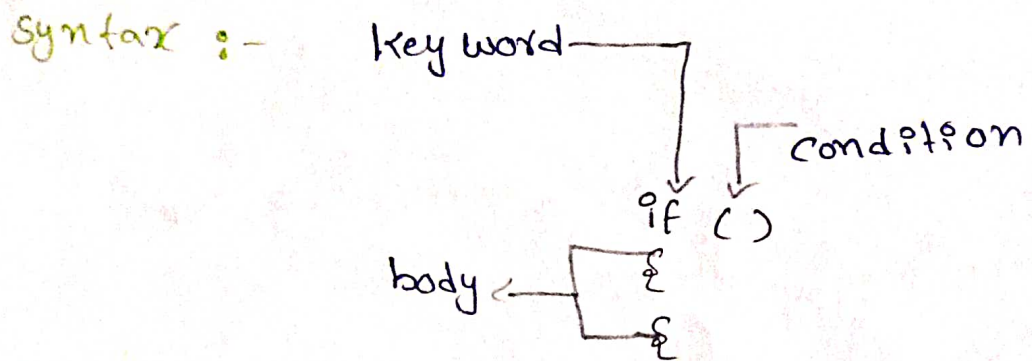 Syntax :- key word
condition
if ( )
{
body
{